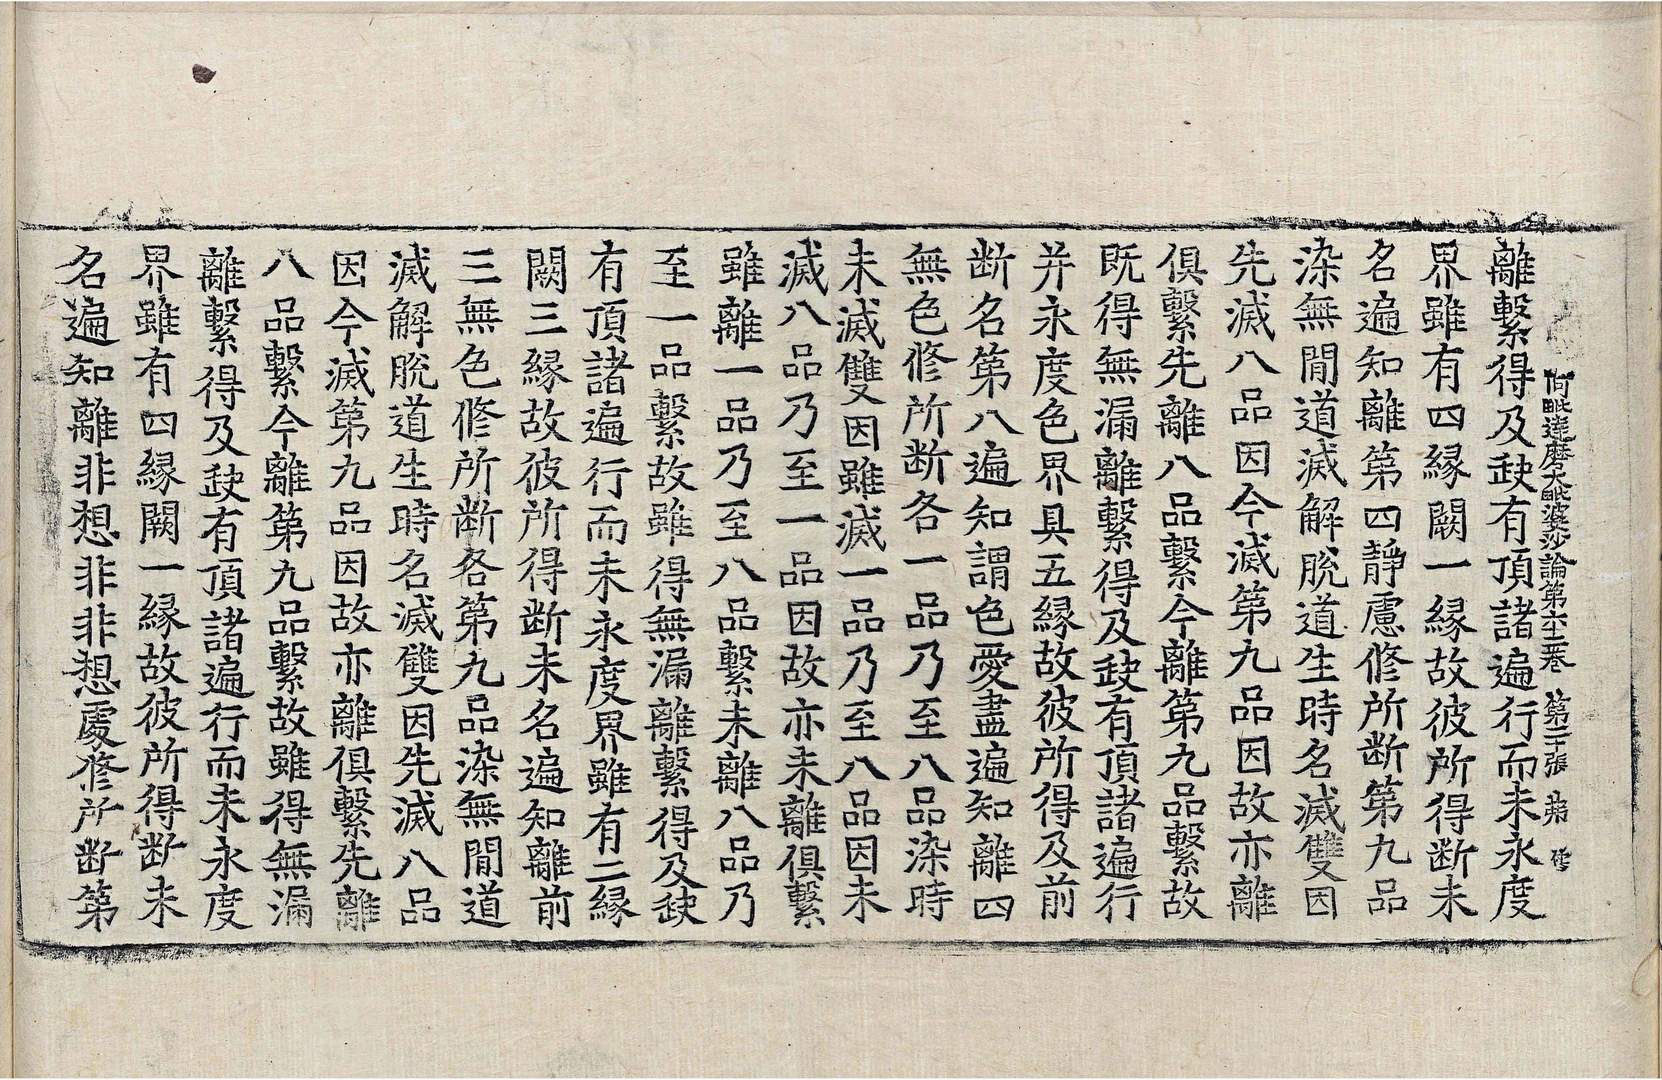 阿毗達磨大毗婆沙論第六十三卷 第二十張 鼎
離繫得及𡙇有頂諸遍行而未永度
界雖有四緣闕一緣故彼所得斷未
名遍知離第四靜慮修所斷第九品
染無閒道滅解脫道生時名滅雙因
先滅八品因今滅第九品因故亦離
俱繫先離八品繫今離第九品繫故
既得無漏離繫得及𡙇有頂諸遍行
并永度色界具五緣故彼所得及前
斷名第八遍知謂色愛盡遍知離四
無色修所斷各一品乃至八品染時
未滅雙因雖滅一品乃至八品因未
滅八品乃至一品因故亦未離俱繫
雖離一品乃至八品繫未離八品乃
至一品繫故雖得無漏離繫得及𡙇
有頂諸遍行而未永度界雖有二緣
闕三緣故彼所得斷未名遍知離前
三無色修所斷各第九品染無閒道
滅解脫道生時名滅雙因先滅八品
因今滅第九品因故亦離俱繫先離
八品繫今離第九品繫故雖得無漏
離繫得及𡙇有頂諸遍行而未永度
界雖有四緣闕一緣故彼所得斷未
名遍知離非想非非想處修所斷第